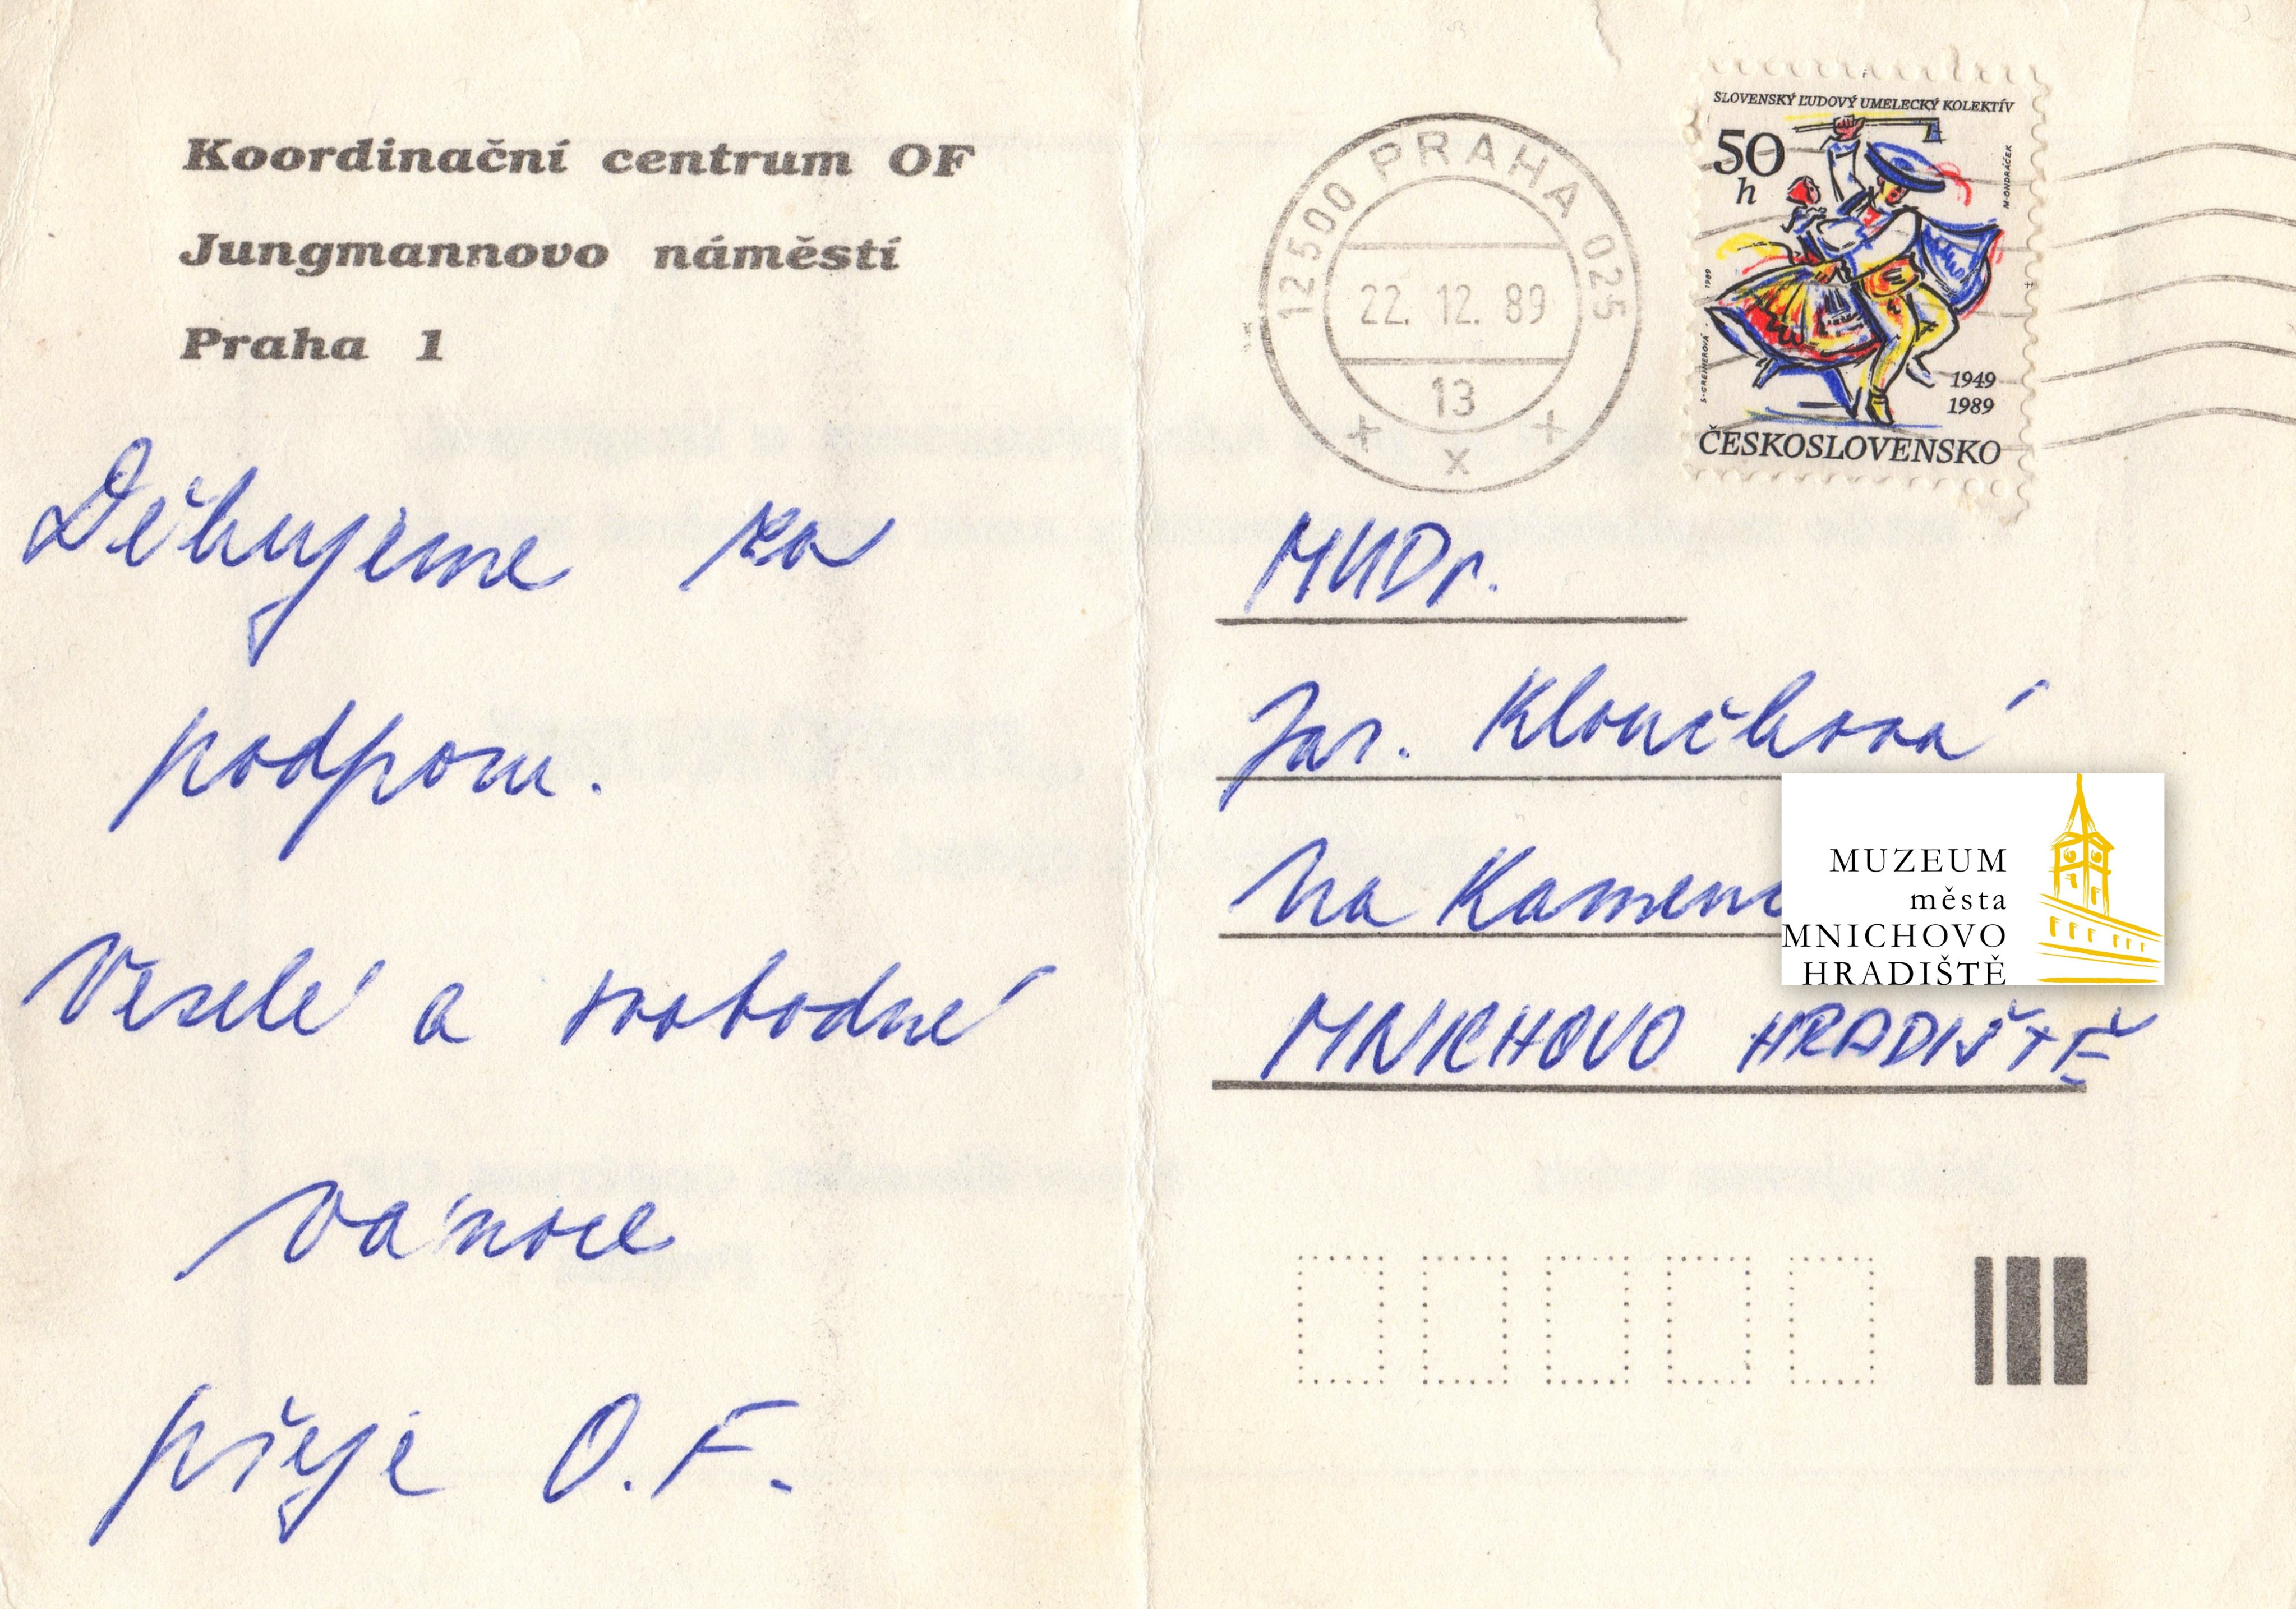 Koordinační centrum OF
Jungmannovo náměstí
Praha 1
Děkujeme za
podporu.
Veselé a svobodné
vánoce
přeje O.F.
12500 PRAHA 025
22. 12. 89
13
x x x
SLOVENSKÝ ĽUDOVÝ UMELECKÝ KOLEKTÍV
50
h
M. ONDRÁČEK
1989
1949
1989
ČESKOSLOVENSKO
MUDr.
Jar. Kloučková
Na Kamenc
MNICHOVO HRADIŠTĚ
MUZEUM
města
MNICHOVO
HRADIŠTĚ